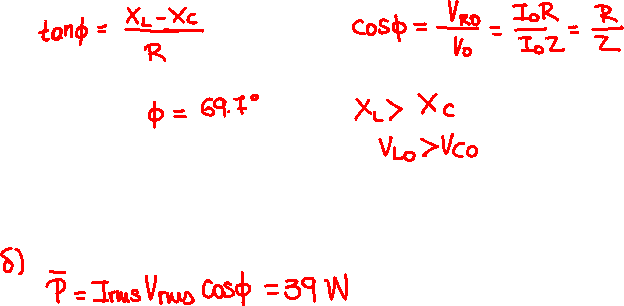 tanϕ = (X_L - X_C)/R
cosϕ = V_R0/V_0 = I_0R/I_0Z = R/Z
ϕ = 69.7°
X_L > X_C
V_L0 > V_C0
δ)
P̅ = I_rms V_rms cosϕ = 39 W